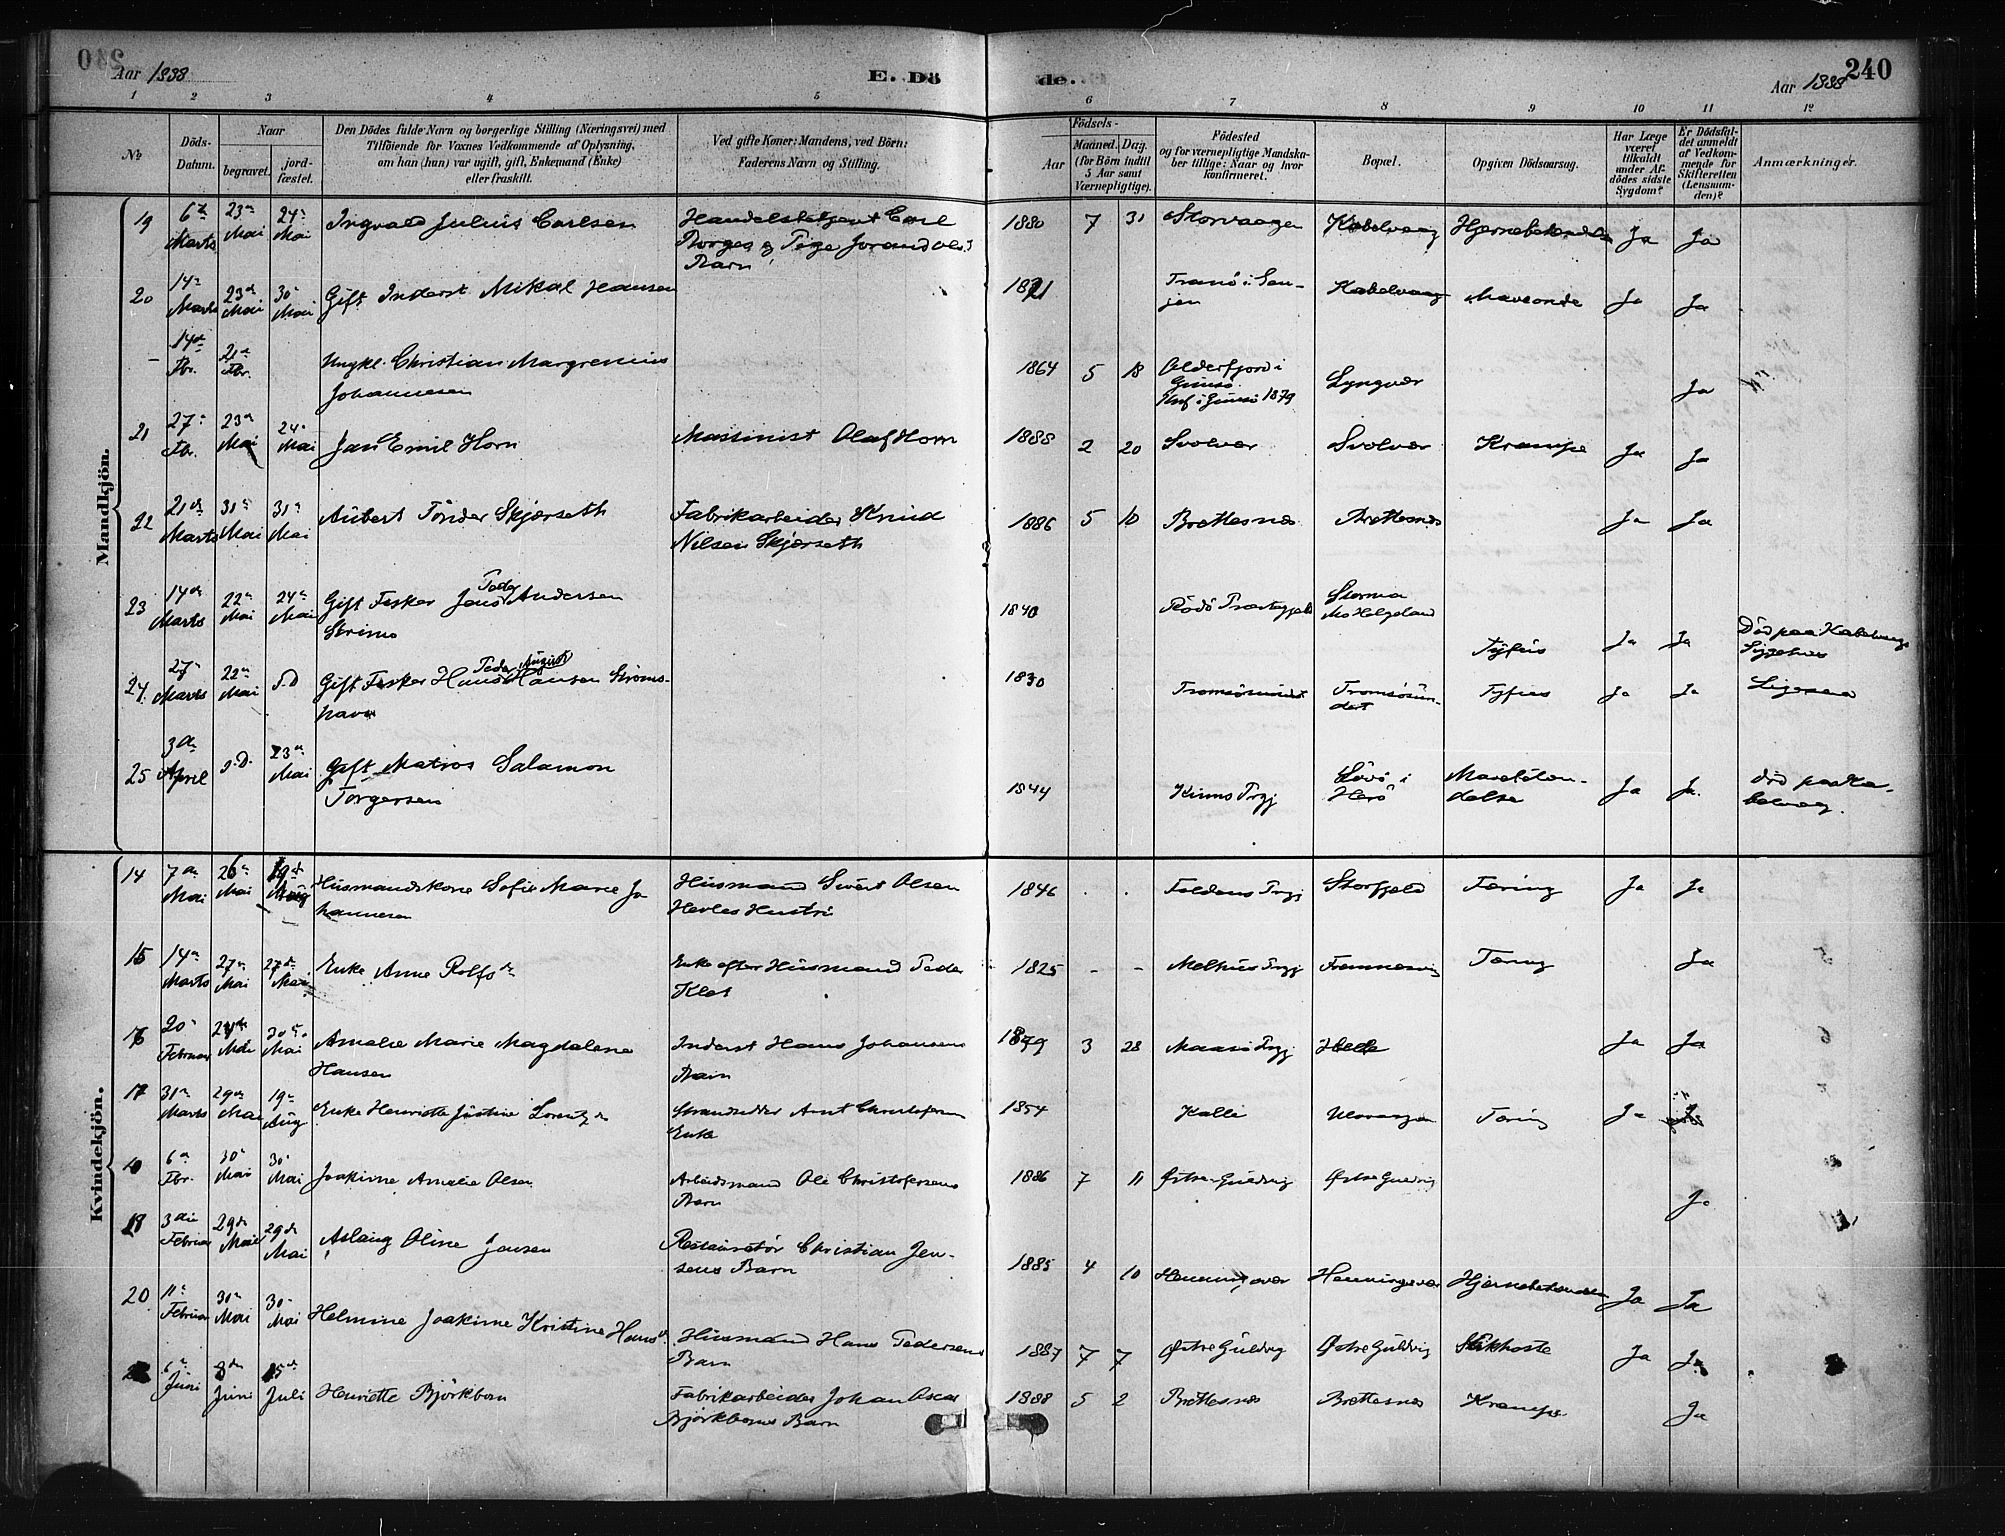 240
Aar 1888 E. Dö de. Aar 1888 240
1 2 3 4 5 6 7 8 9 10 11 12
No. Döds-Datum. Naar begravet. jord-fæstet. Den Dödes fulde Navn og borgerlige Stilling (Næringsvei) med Tilföiende for Voxnes Vedkommende af Oplysning, om han (hun) var ugift, gift, Enkemand (Enke) eller fraskilt. Ved gifte Koner: Mandens, ved Börn: Faderens Navn og Stilling. Födsels- Aar Maaned. Dag. (for Börn indtil 5 Aar samt Værnepligtige). Födested og for værnepligtige Mandskaber tillige: Naar og hvor konfirmeret. Bopæl. Opgiven Dödsaarsag. Har Læge været tilkaldt under Afdödes sidste Sygdom? Er Dödsfaldet anmeldt af Vedkommende for Skifteretten (Lensmanden)? Anmærkninger.
Mandkjön.
19 6te Marts 23de Mai 24de Mai Ingvald Julius Carlsen Handelsbetjent Carl Borges og Pige Joran Barn 1880 7 31 Storvaagen Kabelvaag Ja Ja
20 14de Marts 23de Mai 30te Mai Gift Inderst Mikal Hansen 1821 Tranö i Senjen Kabelvaag Maveonde Ja Ja
14de Fbr. 21de Fbr. Ungkl. Christian Margrenius Johannesen 1864 5 18 Olderfjord i Gimsö Knf i Gimsö 1879 Lyngvær Ja
21 27de Fbr. 23de Mai 24de Mai Jan Emil Horn Massinist Olaf Horn 1888 2 20 Svolvær Svolvær Krampe Ja Ja
22 21de Marts 31te Mai 31te Mai Aubert Tönder Skjærseth Fabrikarbeider Knud Nilsen Skjærseth 1886 5 10 Brettesnæs Brettesnæs Ja Ja
23 14de Marts 22de Mai 24de Mai Gift Fisker Jens Peder Andersen Strimo 1840 Rödö Præstegjeld Mo Helgeland Tyfus Ja Ja Död paa Kabelvaag Sygehus
24 27de Marts 22de Mai s.D Gift Fisker Hans Peder August Hansen Strömshavn 1830 Tromsösundet Tromsösundet Tyfus Ja Ja Ligesaa
25 3de April s.D. 23de Mai Gift Matros Salamon Torgersen 1844 Kinns Prgj i Herö Ja Ja. död paa Kabelvaag.
Kvindekjön.
14 7de Mai 26 Mai 19de Aug Husmandskone Sofie Marie Johannesen Husmand Sivert Olsen Hevles Hustru 1846 . . Foldens Prgj Storfjeld Tæring Ja Ja
15 14de Marts 27de Mai 27de Mai Enke Anne Rolfsdr Enke efter Husmand Peder Klet 1825 - - Melhus Prgj Tæring Ja
16 20de Februar Mai 30te Mai Amalie Marie Magdalene Hansen Inderst Hans Johansens Barn 1879 3 28 Maasö Prgj Ja Ja
17 31te Marts 29de Mai 19de Aug Enke Henriette Justine Lorentzdr Strandsidder Arnt Christofersens Enke 1854 Kalle Tæring Ja Ja
6te Fbr. 30te Mai 30te Mai Joakime Amalie Olsen Arbeidsmand Ole Christofersens Barn 1886 7 11 Østre Guldvig Østre Guldvig Ja
18 3die Februar 29de Mai 29de Mai Aslaug Oline Jensen Restauratör Christian Jensens Barn 1885 4 10 Henningsvær Henningsvær Hjernebetændelse Ja Ja
20 11te Februar 30te Mai 30te Mai Helmine Joakime Kristine Hansdr. Husmand Hans Pedersens Barn 1887 7 7 Østre Guldvig Østre Guldvig Stikhoste Ja Ja
6te Juni 8de Juni 15de Juli Henriette Björkbom Fabrikarbeider Johan Oscar Björkboms Barn 1888 5 2 Brettesnæs Brettesnæs Krampe Ja